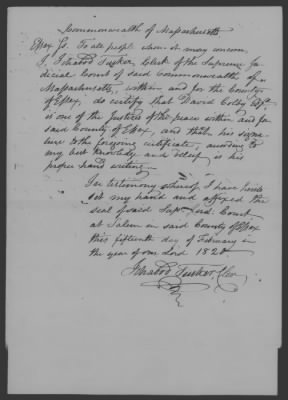 Commonwealth of Massachusetts
Essex Ss. To all people whom it may concern
I, Ichabod Tucker, Clerk of the Supreme Ju-
dicial Court of said Commonwealth of
Massachusetts, within and for the County
of Essex, do certify that David Colby Esqr
is one of the Justices of the peace within and for
said County of Essex, and that his signa-
ture to the foregoing certificate, according to
my best knowledge and belief is his
proper hand writing.
In testimony whereof I have here
set my hand and affixed the
seal of said Sup. Jud. Court
at Salem in said County of Essex
this fifteenth day of February in
the year of our Lord 1820
Ichabod Tucker, Cler